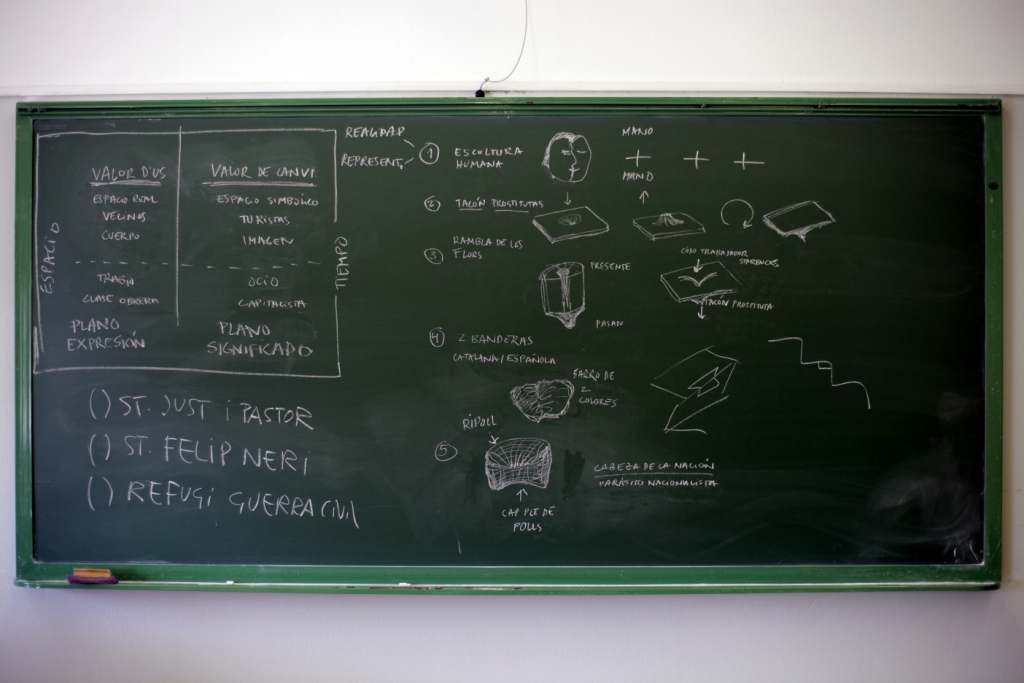 VALOR D'US
ESPACIO REAL
VECINOS
CUERPO
VALOR DE CANVI
ESPACIO SIMBÓLICO
TURISTAS
IMAGEN
ESPACIO
TIEMPO
TRABAJO
CLASE OBRERA
OCIO
CAPITALISTA
PLANO
EXPRESIÓN
PLANO
SIGNIFICADO
() ST. JUST i PASTOR
() ST. FELIP NERI
() REFUGI GUERRA CIVIL
REALIDAD
REPRESENT.
1 ESCULTURA
HUMANA
MANO
MANO
2 TACÓN PROSTITUTAS
3 RAMBLA DE LES
FLORS
PRESENTE
PASAN
TRABAJADOR
STARBUCKS
TACÓN PROSTITUTA
4 2 BANDERAS
CATALANA/ESPAÑOLA
BARRO DE
2
COLORES
5 RIPOLL
CAP PLE DE
POLLS
CABEZA DE LA NACIÓN
PARÁSITO NACIONALISTA